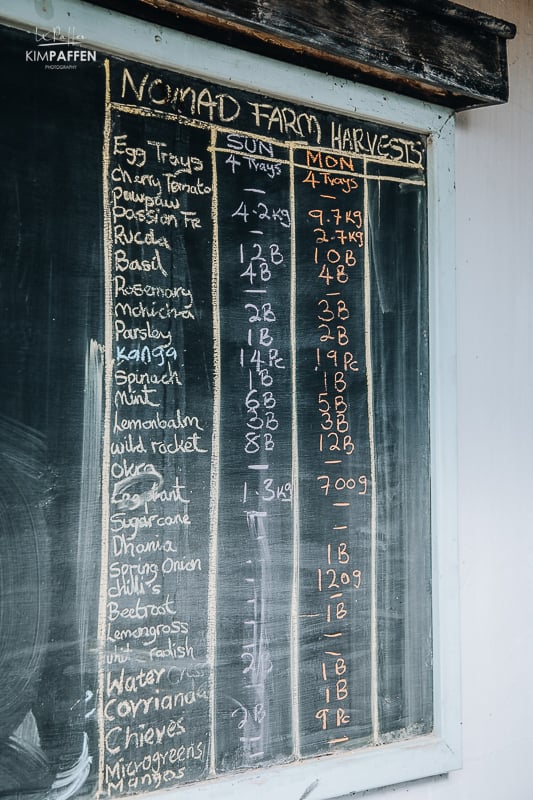 KIMPAFFEN
PHOTOGRAPHY
NOMAD FARM HARVESTS
SUN MON
Egg Trays 4 Trays 4 Trays
Cherry Tomato — —
Pawpaw 4.2kg 9.7kg
Passion Fr 2.7kg
Rucola 12B 10B
Basil 4B 4B
Rosemary —
Mchicha 2B 3B
Parsley 1B 2B
Kanga 14Pc 19Pc
Spinach 1B 1B
Mint 6B 5B
Lemonbalm 3B 3B
wild rocket 8B 12B
Okra — —
Eggplant 1.3kg 700g
Sugarcane — —
Dhania —
Spring Onion 1B
chilli's 120g
Beetroot —
Lemongrass 1B
radish —
Water 2B 1B
Corrianda 1B
Chieves 2B 9Pc
Microgreens — —
Mangos